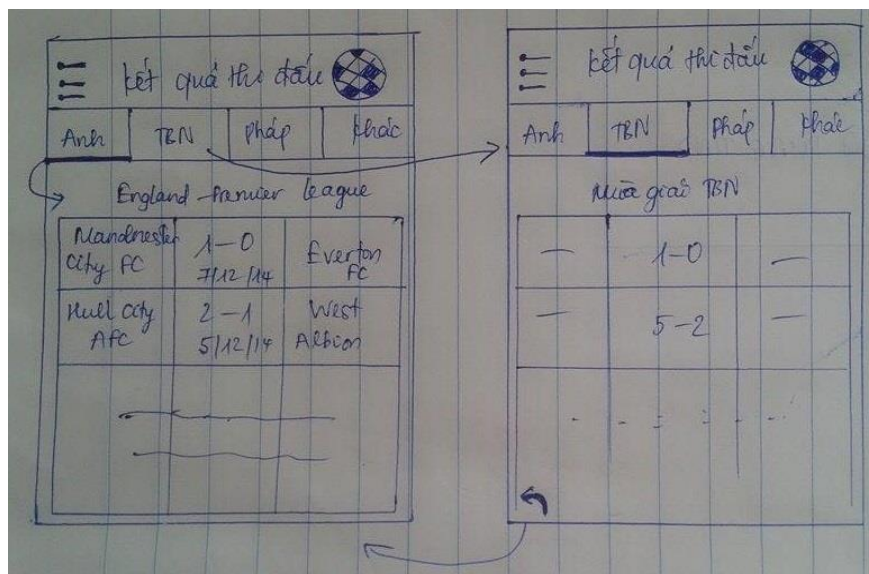 kết quả thi đấu
Anh TBN Pháp Khác
England - Premier League
Manchester City FC 1-0 7/12/14 Everton FC
Hull City AFC 2-1 5/12/14 West Albion
kết quả thi đấu
Anh TBN Pháp Khác
Mùa giải TBN
1-0
5-2